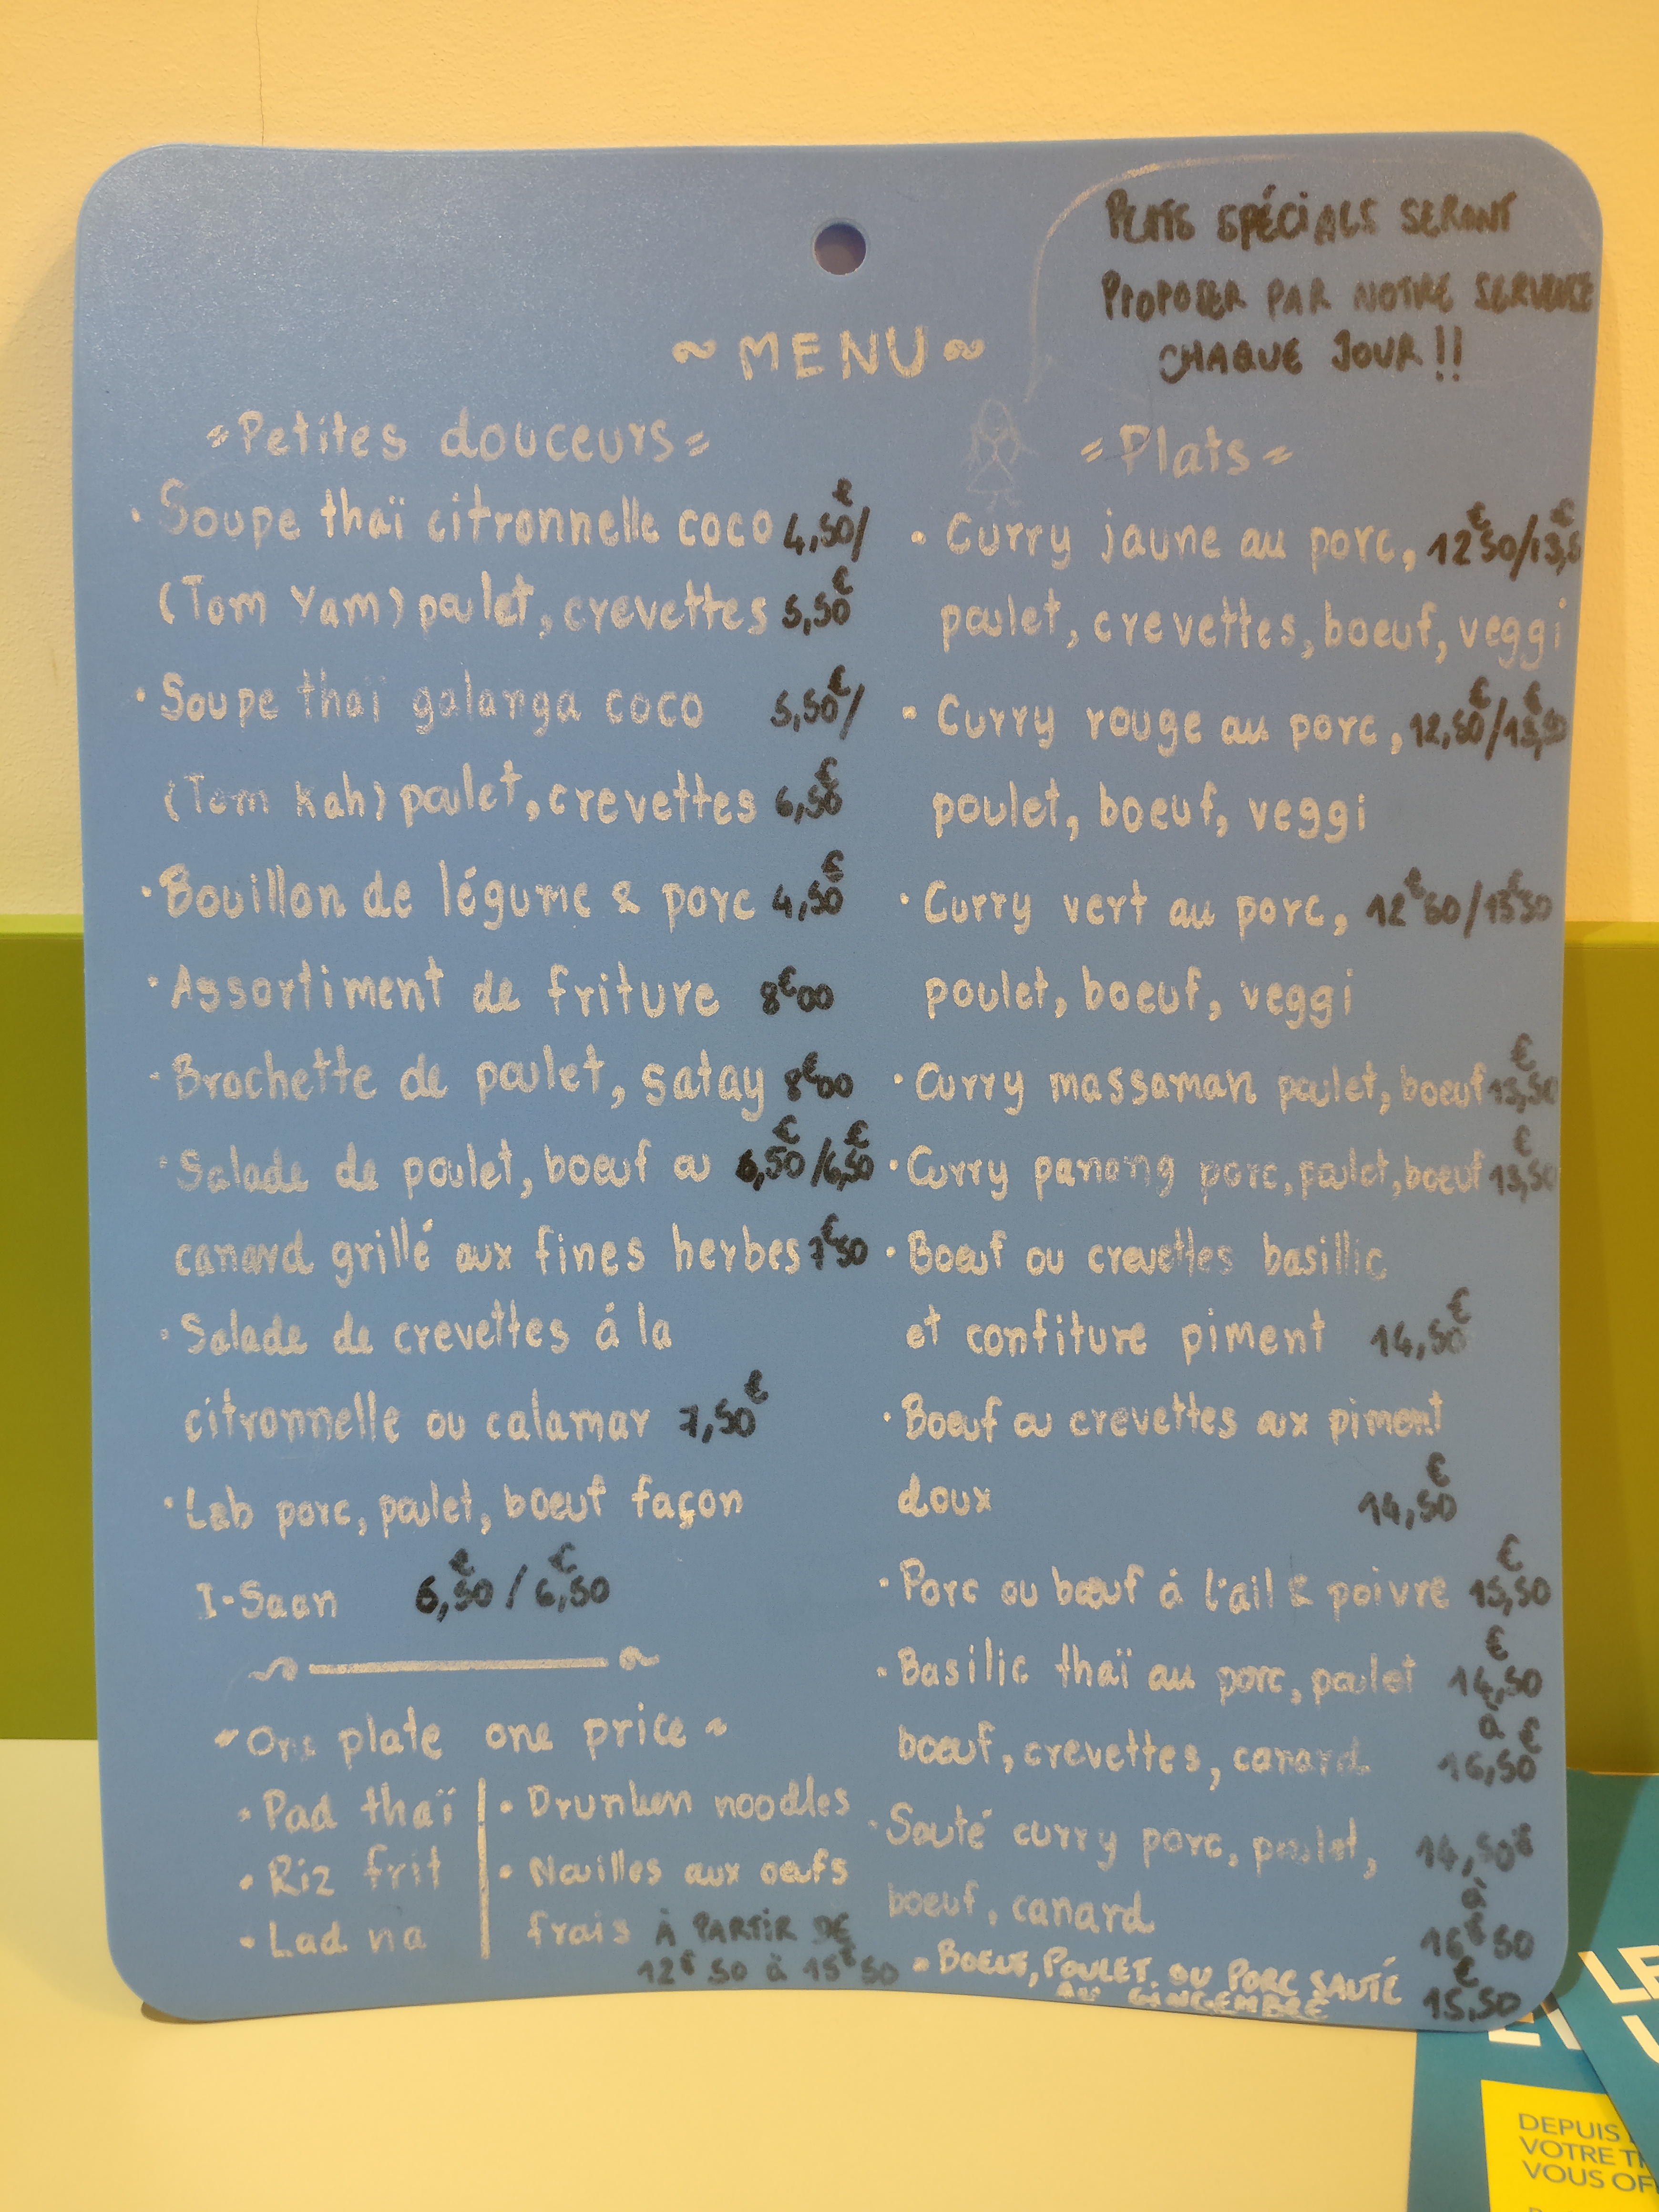 PLATS SPÉCIALS SERONT
PROPOSER PAR NOTRE SERVEUSE
CHAQUE JOUR !!
~ MENU ~
= Petites douceurs =
• Soupe thaï citronnelle coco 4,50€/
(Tom Yam) poulet, crevettes 5,50€
• Soupe thaï galanga coco 5,50€/
(Tom Kah) poulet, crevettes 6,50€
• Bouillon de légume & porc 4,50€
• Assortiment de friture 8€00
• Brochette de poulet, satay 8€00
• Salade de poulet, boeuf ou 6,50€/6,50€
canard grillé aux fines herbes 7€50
• Salade de crevettes à la
citronnelle ou calamar 7,50€
• Lab porc, poulet, boeuf façon
I-Saan 6,50€ / 6,50€
~ One plate one price ~
• Pad thaï
• Riz frit
• Lad na
• Drunken noodles
• Nouilles aux oeufs
frais À PARTIR DE
12€50 à 15€50
= Plats =
• Curry jaune au porc, 12€50/13,5€
poulet, crevettes, boeuf, veggi
• Curry rouge au porc, 12,50€/13,50€
poulet, boeuf, veggi
• Curry vert au porc, 12€50/13€50
poulet, boeuf, veggi
• Curry massaman poulet, boeuf 13,50€
• Curry panang porc, poulet, boeuf 13,50€
• Boeuf ou crevettes basillic
et confiture piment 14,50€
• Boeuf ou crevettes aux piment
doux 14,50€
• Porc ou bœuf à l'ail & poivre 15,50€
• Basilic thaï au porc, poulet 14,50€
à
bœuf, crevettes, canard 16,50€
• Sauté curry porc, poulet, 14,50€
à
boeuf, canard 16€50
• BOEUF, POULET, OU PORC SAUTÉ
AU GINGEMBRE 15,50€
DEPUIS
VOTRE
VOUS